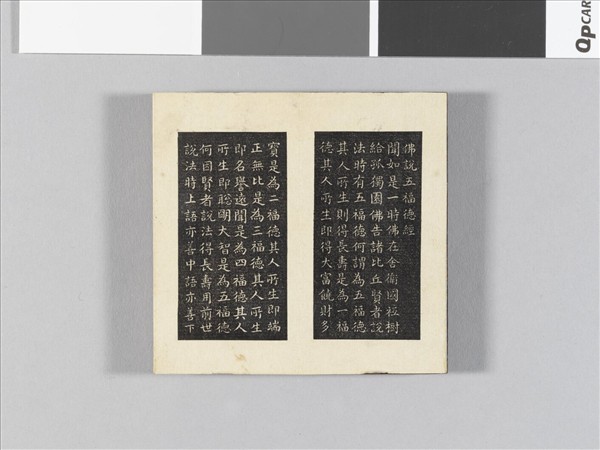 佛說五福德經
聞如是一時佛在舍衛國祇樹
給孤獨園佛告諸比丘賢者說
法時有五福德何謂為五福德
其人所生則得長壽是為一福
德其人所生即得大富饒財多
寶是為二福德其人所生即端
正無比是為三福德其人所生
即名譽遠聞是為四福德其人
所生即聰明大智是為五福德
何因賢者說法得長壽用前世
說法時上語亦善中語亦善下
QPCAR